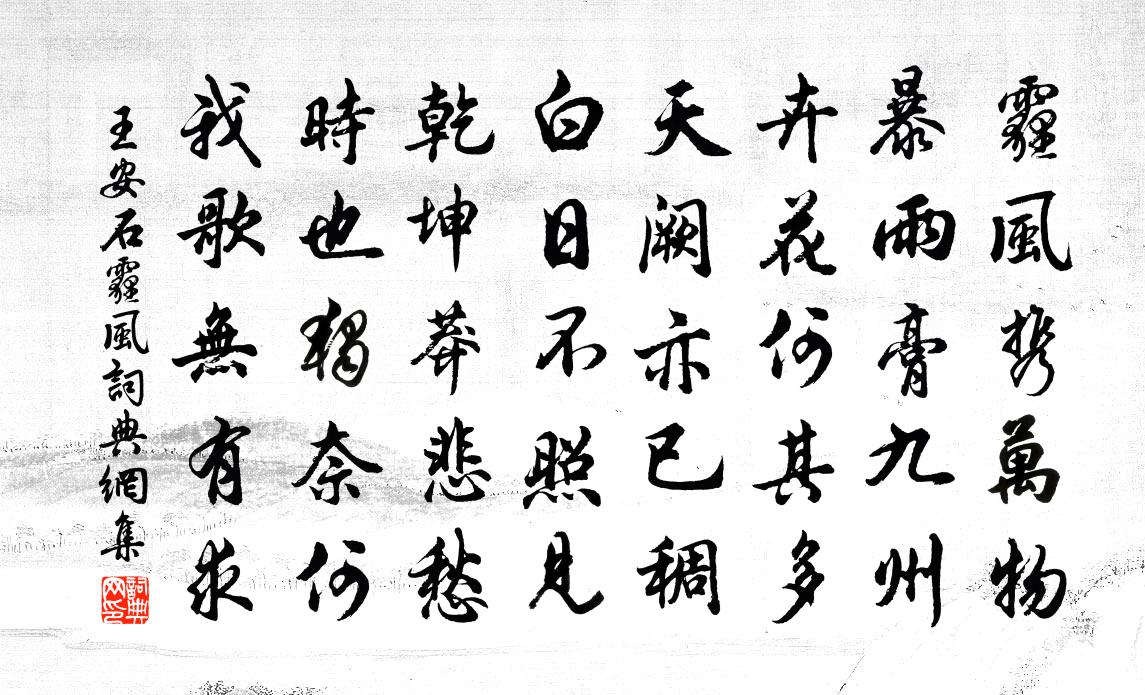 霾風携萬物
暴雨膏九州
卉花何其多
天阙亦已稠
白日不照見
乾坤莽悲愁
時也獨奈何
我歌無有求
王安石霾風詞典網集
詞典网印